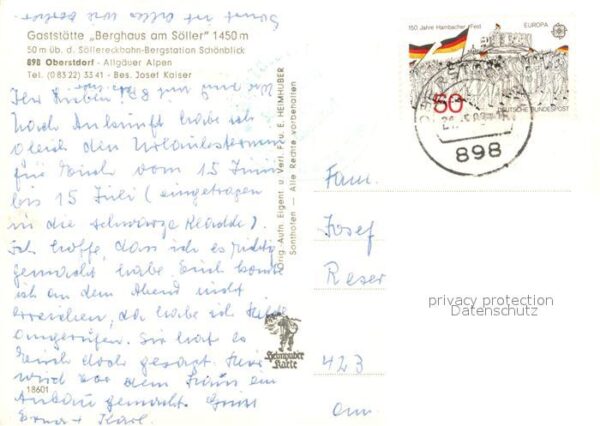 Gaststätte „Berghaus am Söller" 1450 m
50 m üb. d. Söllereckbahn-Bergstation Schönblick
898 Oberstdorf - Allgäuer Alpen
Tel. (0 83 22) 33 41 - Bes. Josef Kaiser
Sonst ist alles wie
Ihr Lieben!
Nach Ankunft habe ich
gleich den Urlaubstermin
für Euch vom 15 Juni
bis 15 Juli (eingetragen
in die schwarze Kladde).
Ich hoffe, dass ich es richtig
gemacht habe. Euch konnte
ich an dem Abend nicht
erreichen, da habe ich
angerufen. Sie hat es
Euch doch gesagt. Hier
wird vor dem Haus ein
Anbau gemacht. Gruß
Erna + Karl.
18601
Orig.-Aufn. Eigent. u. Verl. Fzu. E. HEIMHUBER
Sonthofen — Alle Rechte vorbehalten
Heimhuber
Karte
150 Jahre Hambacher Fest
EUROPA
CEPT
50
DEUTSCHE BUNDESPOST
898
Fam.
Josef
Reser
423
privacy protection
Datenschutz